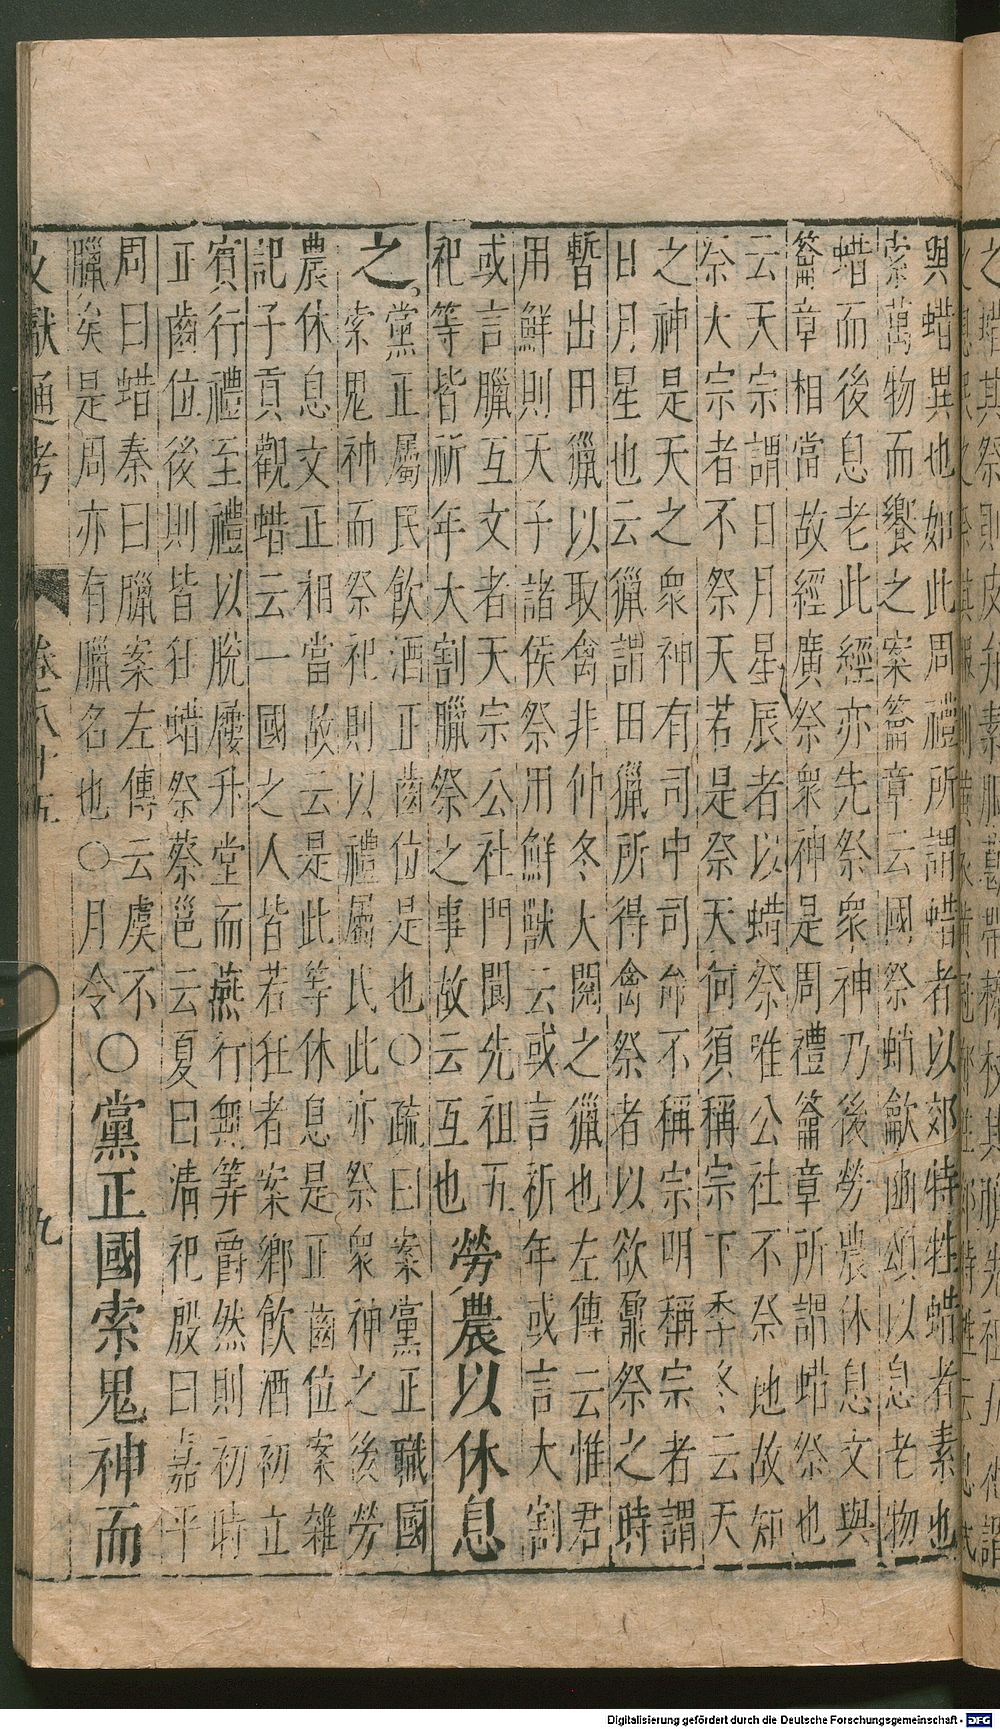 與蜡異也如此周禮所謂蜡者以郊特牲蜡者素也
索萬物而饗之案籥章云國祭蜡龡豳頌以息老物
蜡而後息老此經亦先祭衆神乃後勞農休息文與
籥章相當故經廣祭衆神是周禮籥章所謂蜡祭也
云天宗謂日月星辰者以蜡祭唯公社不祭地故知
祭大宗者不祭天若是祭天何須稱宗下季冬云天
之神是天之衆神有司中司命不稱宗明稱宗者謂
日月星也云獵謂田獵所得禽祭者以欲臘祭之時
暫出田獵以取禽非仲冬大閱之獵也左傳云惟君
用鮮則天子諸侯祭用鮮獸云或言祈年或言大割
或言臘互文者天宗公社門閭先祖五
祀等皆祈年大割臘祭之事故云互也
勞農以休息
之
黨正屬民飲酒正齒位是也○疏曰案黨正職國
索鬼神而祭祀則以禮屬民此亦祭衆神之後勞
農休息文正相當故云是此等休息是正齒位案雜
記子貢觀蜡云一國之人皆若狂者案鄉飲酒初立
賓行禮至禮以脫屨升堂而燕行無筭爵然則初時
正齒位後則皆狂蜡祭蔡邕云夏曰清祀殷曰嘉平
周曰蜡秦曰臘案左傳云虞不
臘矣是周亦有臘名也○月令
○黨正國索鬼神而
文獻通考
卷八十五
九
Digitalisierung gefördert durch die Deutsche Forschungsgemeinschaft - DFG